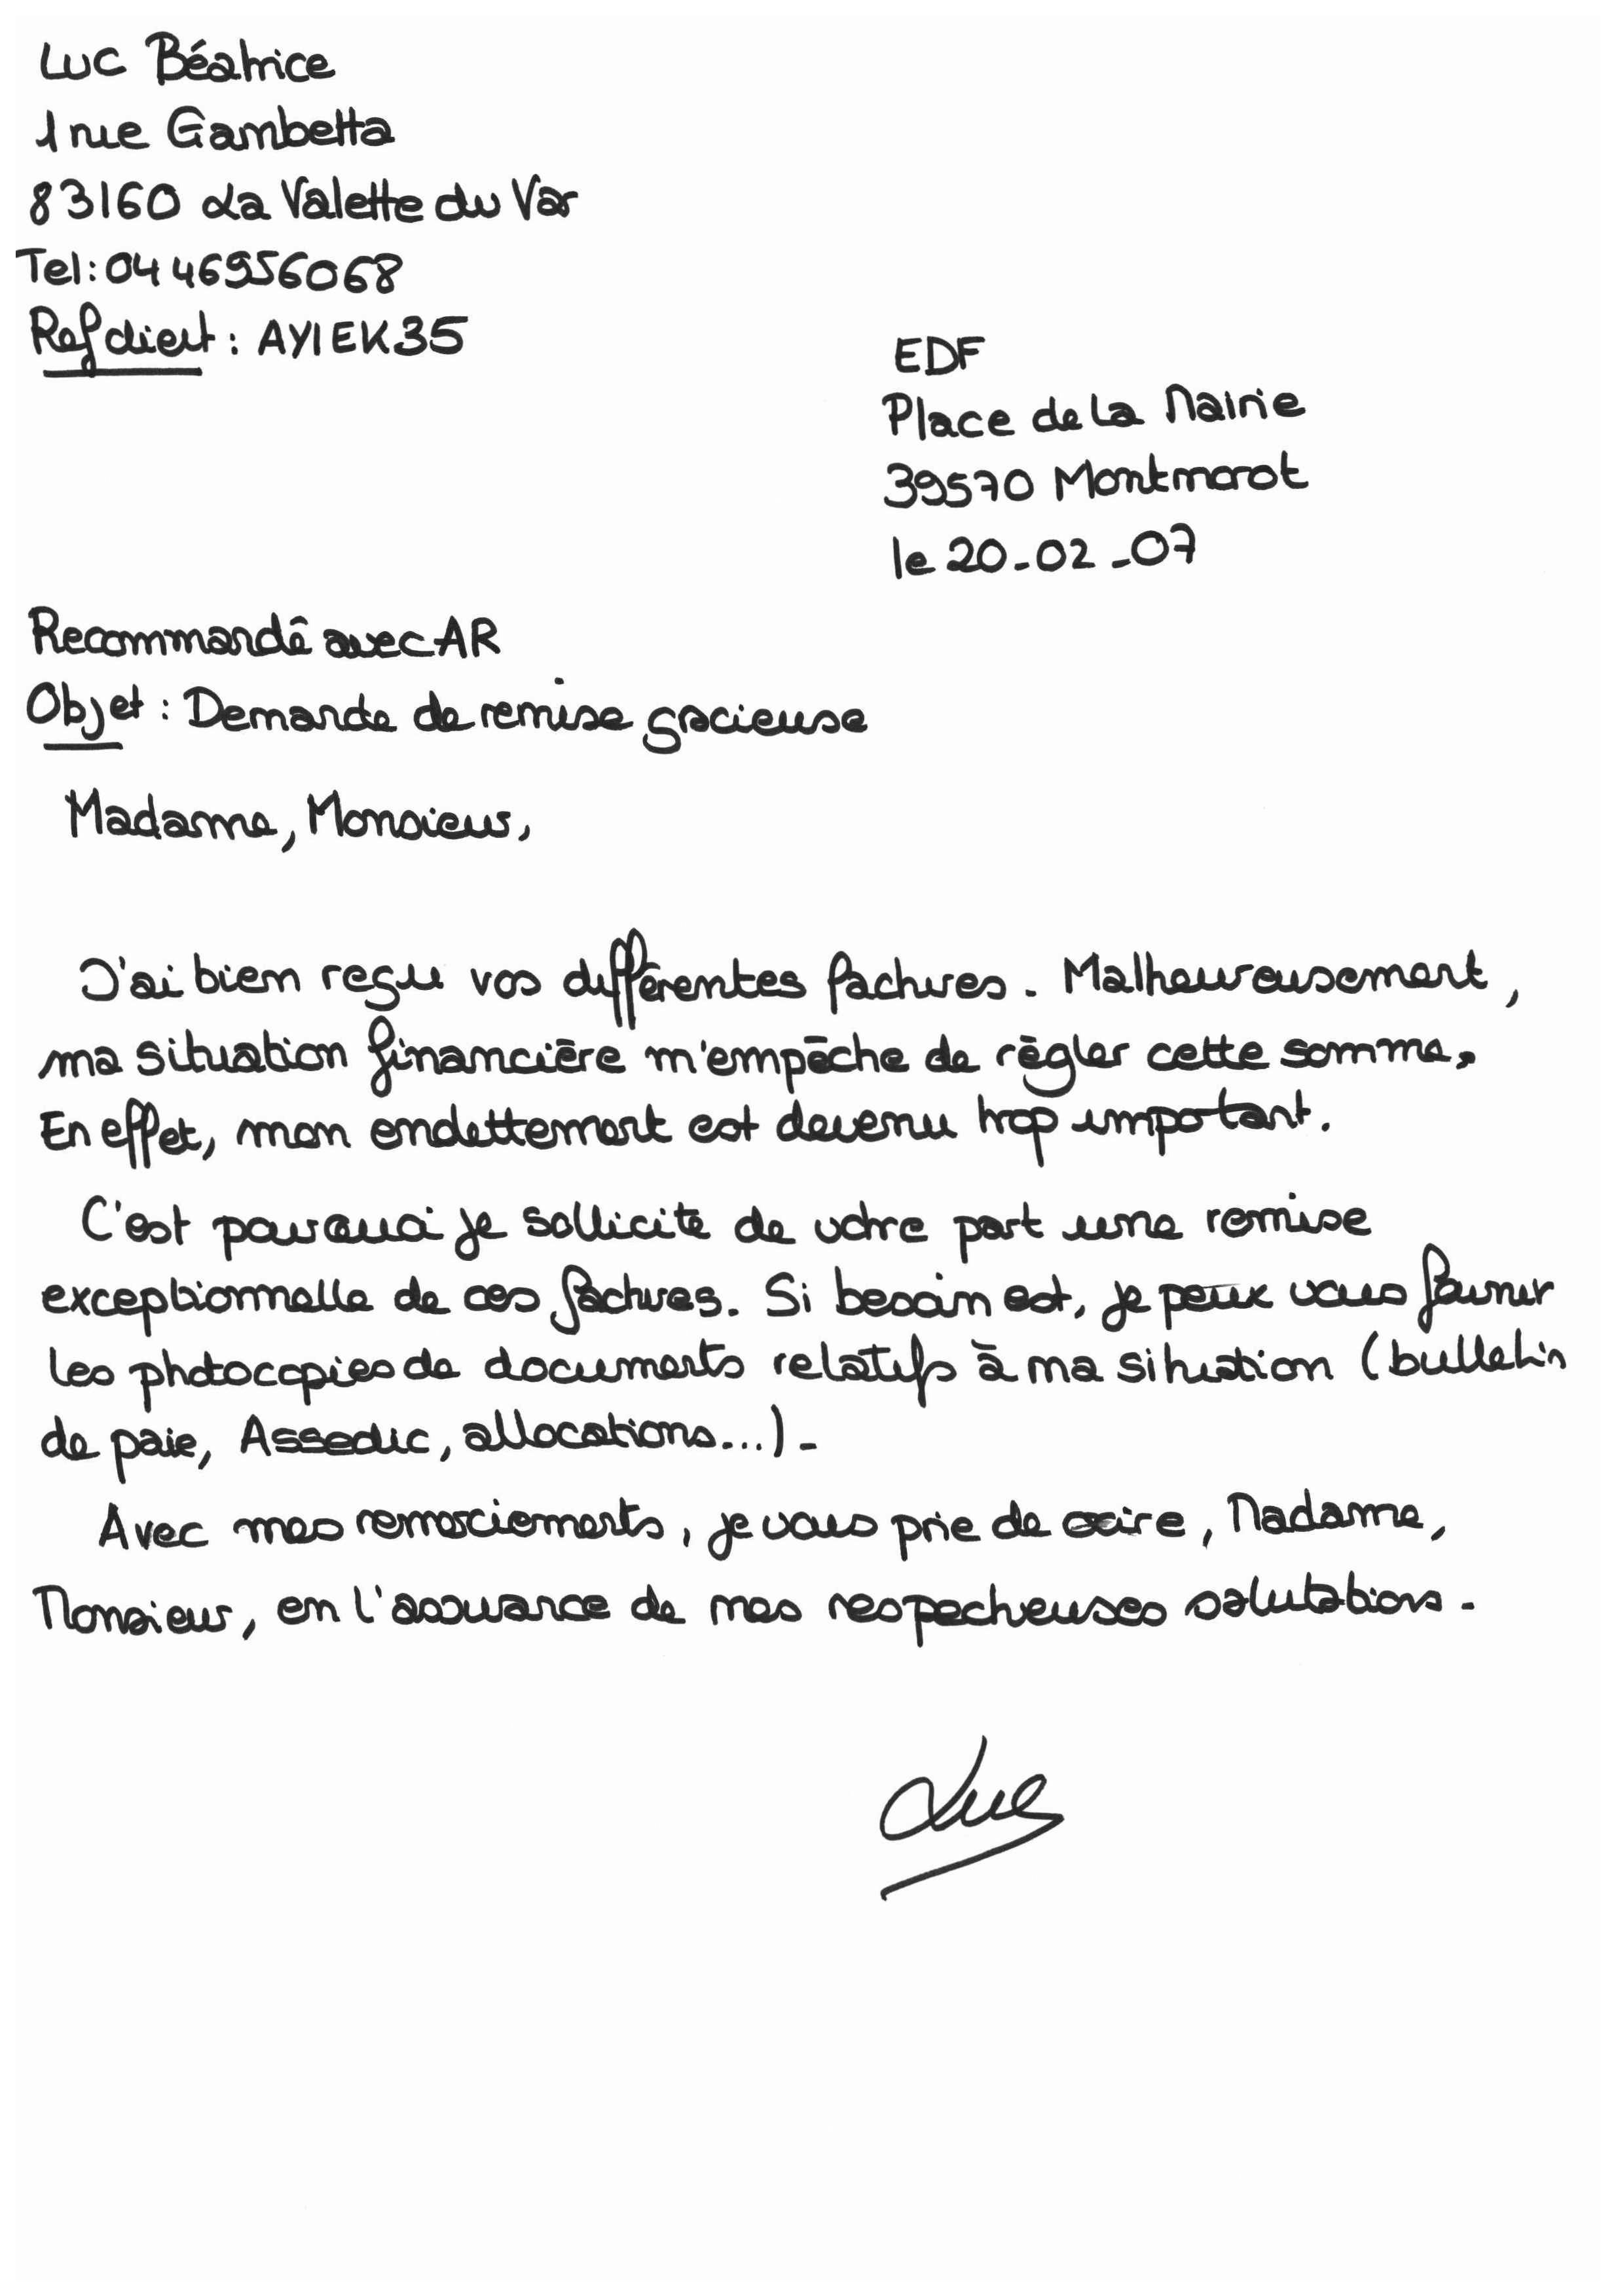 Luc Béatrice
1 rue Gambetta
83160 La Valette du Var
Tel : 04 46956068
Ref client : AYIEK35
EDF
Place de la Mairie
39570 Montmorot
le 20-02-07
Recommandé avec AR
Objet : Demande de remise gracieuse
Madame, Monsieur,
J'ai bien reçu vos différentes factures. Malheureusement,
ma situation financière m'empêche de règler cette somme.
En effet, mon endettement est devenu trop important.
C'est pourquoi je sollicite de votre part une remise
exceptionnelle de ces factures. Si besoin est, je peux vous fournir
les photocopies de documents relatifs à ma situation (bulletin
de paie, Assedic, allocations...).
Avec mes remerciements, je vous prie de croire, Madame,
Monsieur, en l'assurance de mes respectueuses salutations.
Luc